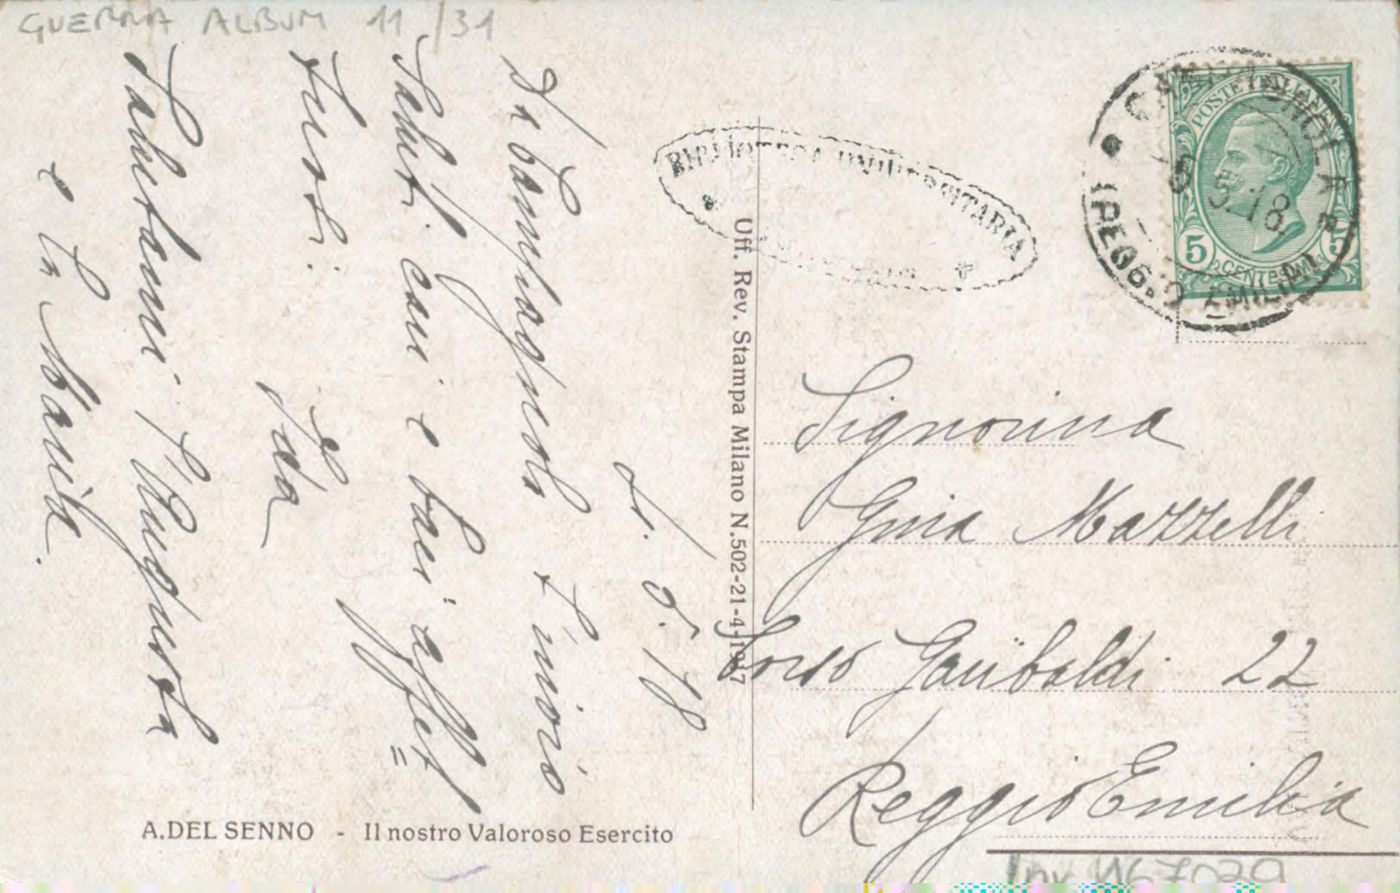 GUERRA ALBUM 11/31
5. 5. 18
Da Campagnola t'invio
saluti cari e baci affet=
tuosi.
Ida
Salutami l'Augusta
e la Maria.
BIBLIOTECA UNIVERSITARIA
Uff. Rev. Stampa Milano N.502-21-4-1917
CAMPAGNOLA
5. 18
(REGGIO EMILIA)
POSTE ITALIANE
5 CENTESIMI 5
Signorina
Gina Mazzelli
Corso Garibaldi 22
Reggio Emilia
A.DEL SENNO - Il nostro Valoroso Esercito
Inv. N67029